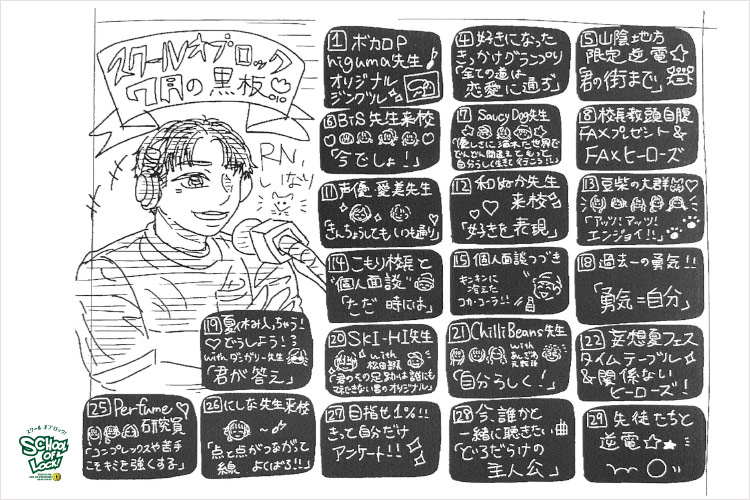 スクールオブロック
7月の黒板
RN.
しばなり
1 ボカロP
niguma先生
オリジナル
ジングル
4 好きになった
きっかけグランプリ
「全ての道は
恋愛に通ず」
5 山陰地方
限定逆電☆
君の街まで
6 BTS先生来校
「今でしょ!」
7 Saucy Dog先生
「優しさに溢れた世界で
でんでん間違えてもいい
自分らしく生きて行こう!!」
8 校長教頭自腹
FAXプレゼント&
FAXヒーローズ
11 声優 愛美先生
「きんちょうしてもいつも通り」
12 和ぬか先生
来校
「好きを表現」
13 豆柴の大群
「アッツ!アッツ!
エンジョイ!!」
14 こもり校長と
"個人面談"
「ただ 時には」
15 個人面談つづき
キンキンに
冷えた
コカ・コーラ!!
18 過去一の勇気!!
「勇気=自分」
19 夏休み入っちゃう!
どうしよう!?
with ダンガリー先生
「君が答え」
20 SKI-HI先生
with
「君のその足跡は誰にも
マネできない君のオリジナル」
21 ChilliBeans先生
with
「自分らしく!」
22 妄想夏フェス
タイムテーブル
&関係ない
ヒーローズ!
25 Perfume
研究員
「コンプレックスや苦手
こそキミを強くする」
26 にしな先生来校
「点と点がつながって
線 よくばる!!」
27 目指せ1%!!
きって自分だけ
アンケート!!
28 今、誰かと
一緒に聴きたい曲
「どろだらけの
主人公」
29 生徒たちと
逆電☆
スクール オブ ロック!
SCHOOL
OF
LOCK!